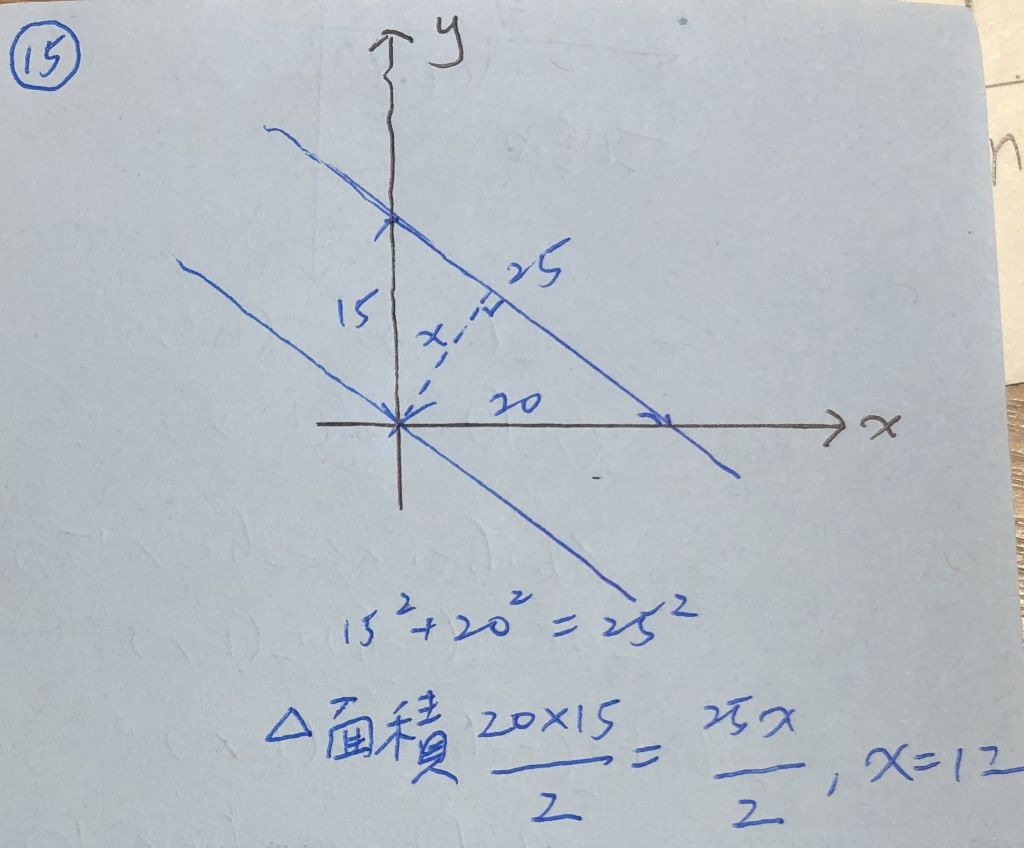 15
y
25
15
x
20
x
15² + 20² = 25²
△面積 20×15/2 = 25x/2 , x=12
n